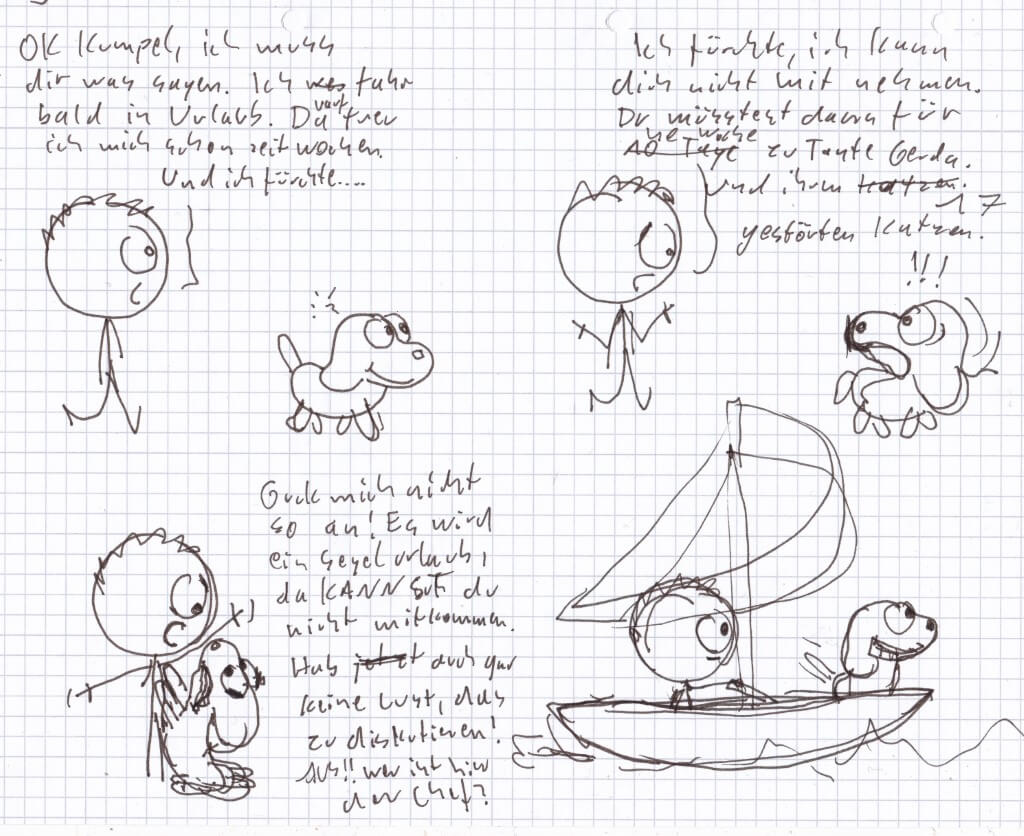 OK Kumpel, ich muss
dir was sagen. Ich fahr
bald in Urlaub. Da
freu
ich mich schon seit wochen.
Und ich fürchte....
Ich fürchte, ich kann
dich nicht mit nehmen.
Du müsstest dann für
ne woche
10 Tage zu Tante Gerda.
Und ihren Katzen.
17
gestörten Katzen.
!!!
Guck mich nicht
so an! Es wird
ein segelurlaub,
da KANNST du
nicht mitkommen.
Hab auch gar
keine Lust, das
zu diskutieren!
AUS!! wer ist hier
der Chef?